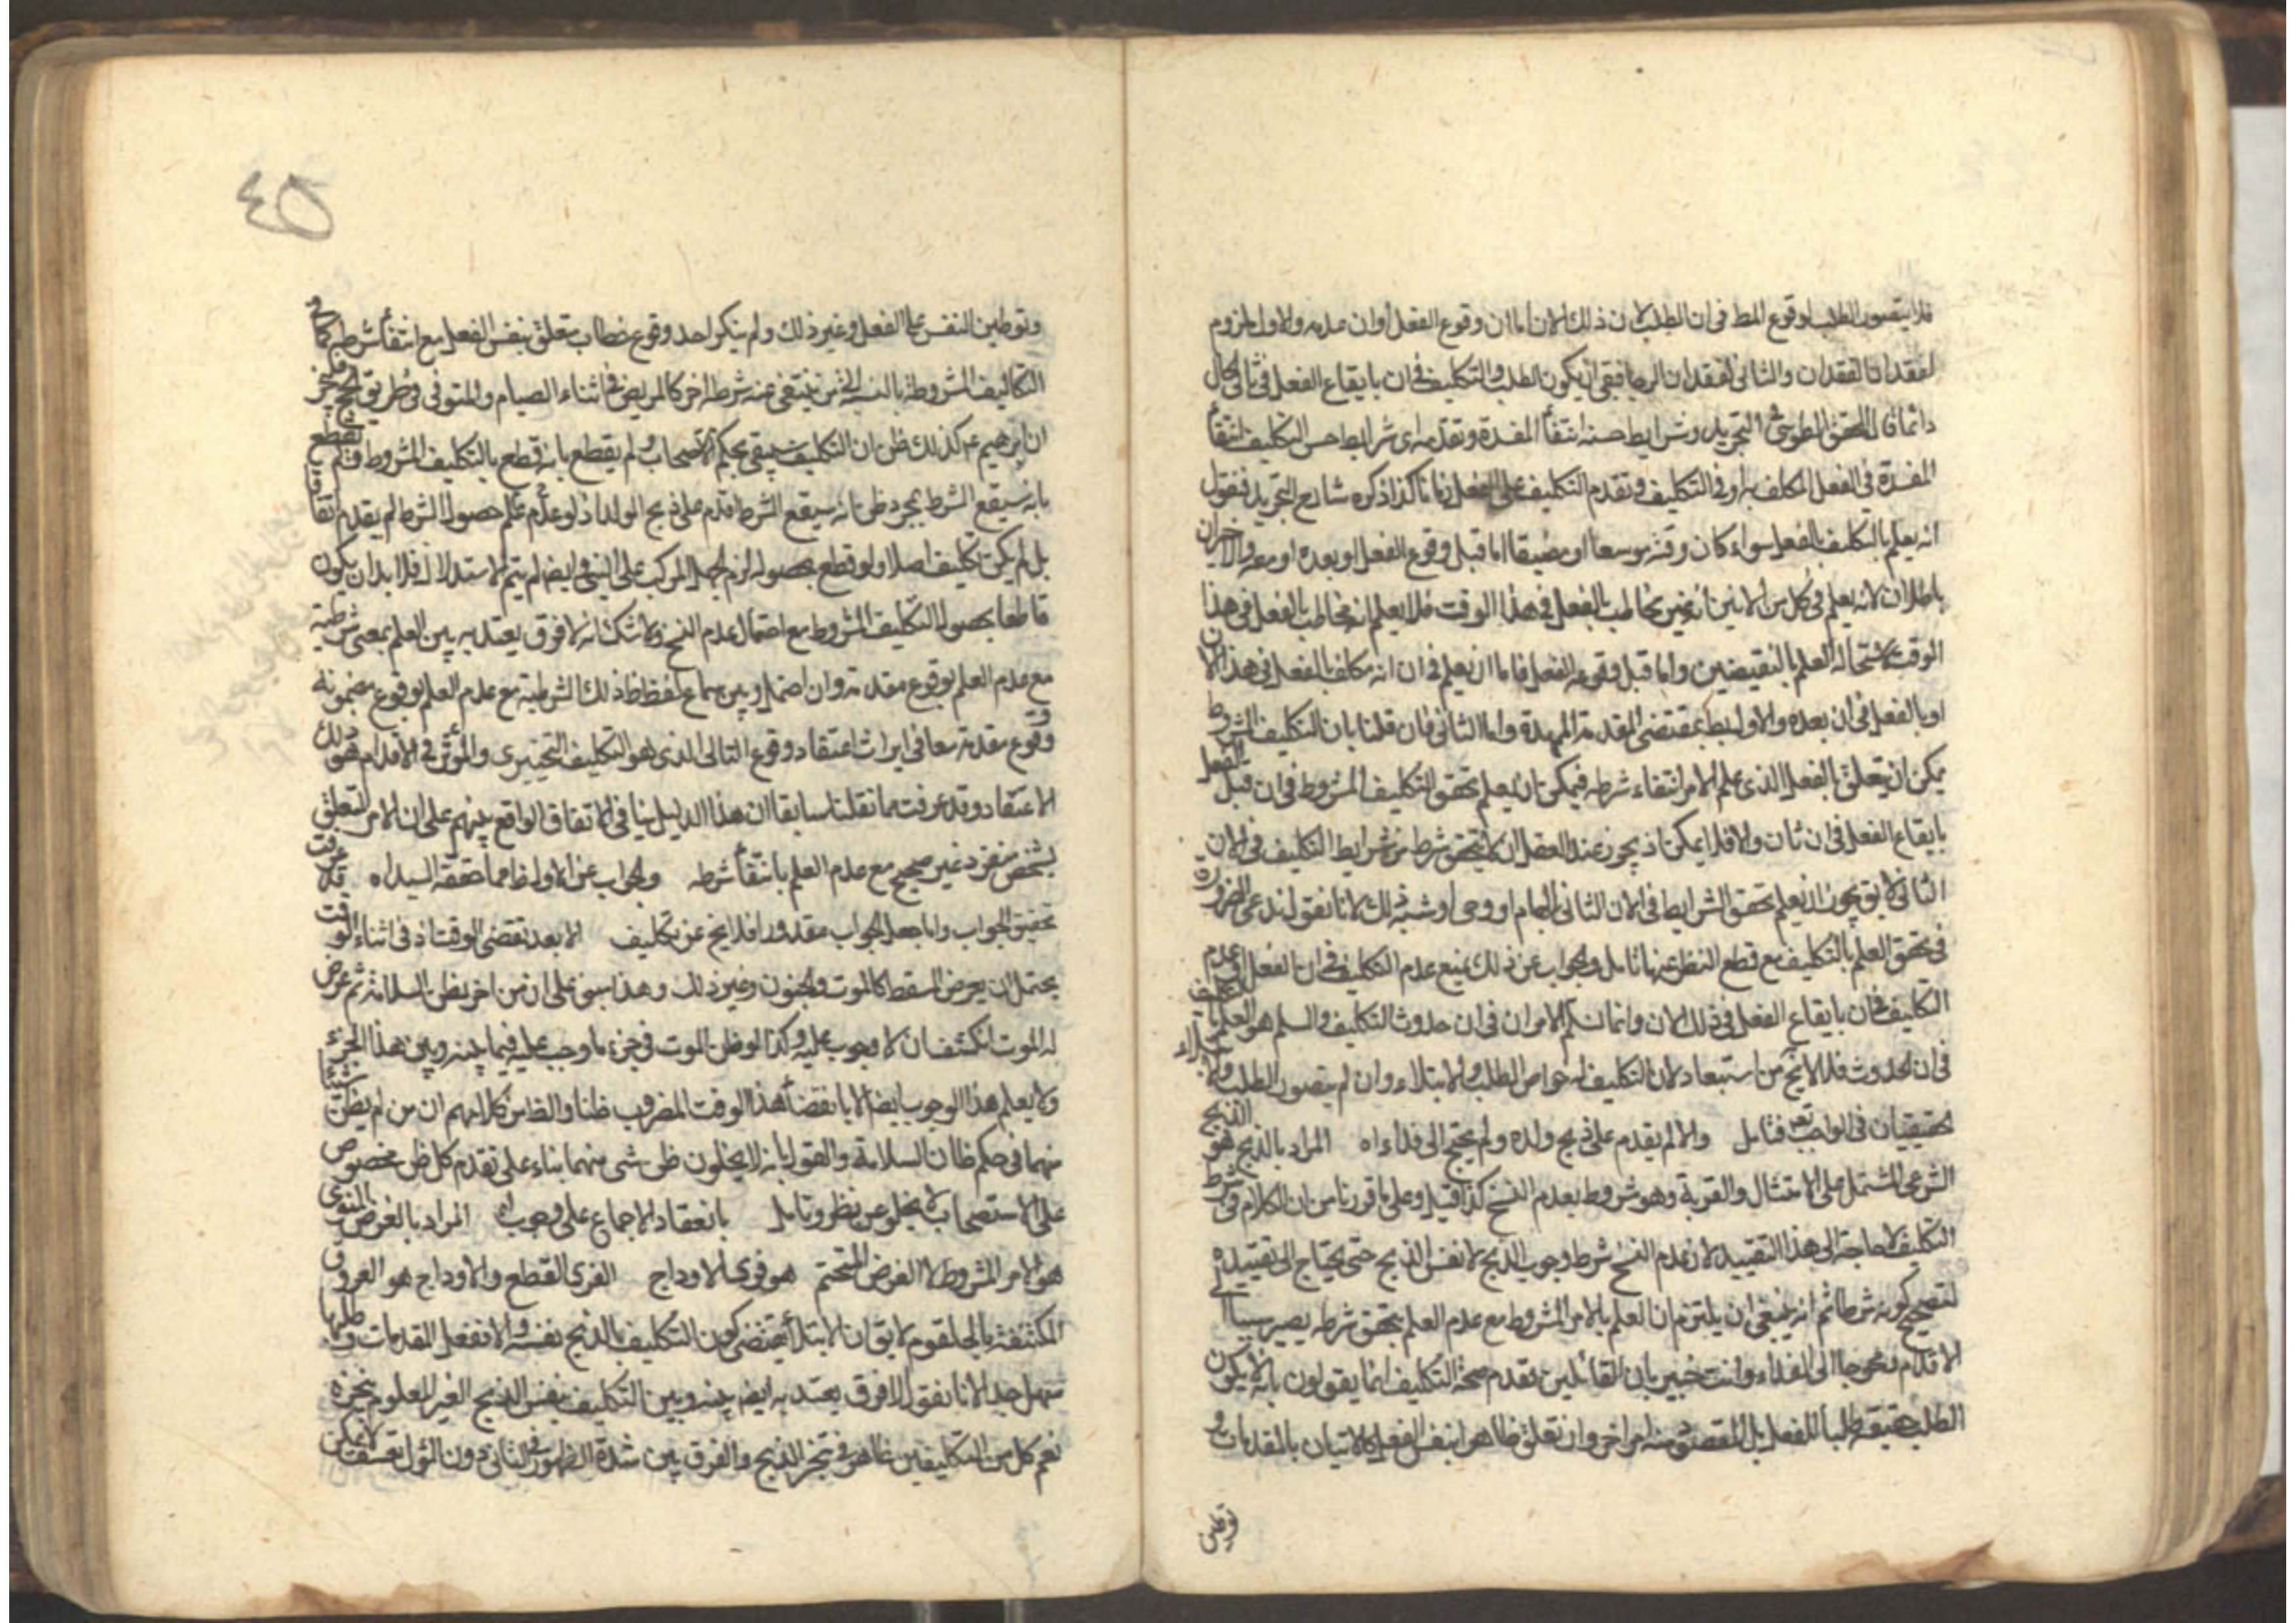 فلا يتصور الطلب لوقوع المط في ان الطلب لان ذلك الان اما ان وقوع الفعل او ان عدمه والاول ملزوم
لفقدان الفقدان والثاني لفقدان الرضا فبقي ان يكون الطلب والتكليف في ان بايقاع الفعل في ثاني الحال
دائما قال المحقق الطوسي في التجريد وشرايط حسنه انتفاء المفسدة وتقدمه اي شرايط حسن التكليف انتفاء
المفسدة في الفعل المكلف به او في التكليف وتقدم التكليف على الفعل زمانا كذا ذكره شارح التجريد فنقول
انه يعلم بالتكليف بالفعل سواء كان وقته موسعا او مضيقا اما قبل وقوع الفعل او بعده او معه والاخيران
باطلان لانه يعلم في كل من الانين انه غير مخاطب بالفعل في هذا الوقت فلا يعلم انه مخاطب بالفعل في هذا
الوقت لاستحالة العلم بالنقيضين واما قبل وقوعه الفعل فاما ان يعلم في ان انه مكلف بالفعل في هذا الان
او بالفعل في ان بعده والاول بط بمقتضى المقدمة الممهدة واما الثاني فان قلنا بان التكليف المشروط
يمكن ان يتعلق بالفعل الذي علم الامر انتفاء شرطه فيمكن ان يعلم تحقق التكليف المشروط في ان قبل الفعل
بايقاع الفعل في ان ثان والا فلا يمكن اذ يجوز عند العقل ان لا يتحقق شرط من شرايط التكليف في الان
الثاني لا يق يجوز ان يعلم تحقق الشرايط في الان الثاني بالهام او وحي او شبه ذلك لانا نقول ندعي الضرورة
في تحقق العلم بالتكليف مع قطع النظر عنها تامل والجواب عن ذلك بمنع عدم التكليف في ان الفعل اي عدم
التكليف في ان بايقاع الفعل في ذلك الان وانما نسلم الامران في ان حدوث التكليف والسلم هو العلم بالتكليف
في ان الحدوث فلا لا يخ من استبعاد لان التكليف له خواص الطلب والابتلاء وان لم يتصور الطلب والابتلاء
تحقيقيان في الواجب تعم فتامل والا لم يقدم على ذبح ولده ولم يحتج الى فداء اه المراد بالذبح هو الذبح
الشرعي المشتمل على الامتثال والقربة وهو مشروط بعدم النسخ كذا قيل وعلى ما قررنا من ان الكلام في شرط
التكليف لا حاجة الى هذا التقييد لان عدم النسخ شرط وجوب الذبح لا نفس الذبح حتى يحتاج الى تقييده
لتصحيح كونه شرطا ثم انه ينبغي ان يلتزم ان العلم بالامر المشروط مع عدم العلم بتحقق شرطه يصير سببا
الاقدام محوجا الى الفداء وانت خبير بان القائلين تقدم صحة التكليف انما يقولون بانه لا يكون
الطلب حقيقة طلبا للفعل بل المقصود منه امر اخر وان تعلق ظاهرا بنفس الفعل كالاتيان بالمقدمات و
توطين
٤٥
وتوطين النفس على الفعل وغير ذلك ولم ينكر احد وقوع خطاب متعلق بنفس الفعل مع انتفاء شرطه كما في
التكاليف المشروطة بالنسبة الى من ينتفي عنه شرط اخر كالمريض في اثناء الصيام والمتوفى في طريق الحج
ان ابرهيم عم كذلك ظن ان التكليف سيبقى بحكم الاستصحاب ولم يقطع بانه قطع بالتكليف المشروط فلم يقطع
بانه سيقع الشرط بمجرد ظن انه سيقع الشرط اقدم على ذبح الولد اذ لو علم عدم حصول الشرط لم يقدم اتفاقا
بل لم يكن تكليف اصلا ولو قطع بحصوله لزم الجهل المركب على النبي وايضا لم يتم الاستدلال فلا بد ان يكون
قاطعا بحصول التكليف المشروط مع احتمال عدم النسخ ولا شك انه لا فرق يعتد به بين العلم بمعنى شرطية
مع عدم العلم بوقوع مقدمة وان احتمل وبين سماع لفظ ذلك الشرطية مع عدم العلم بوقوع مضمونه
وقوع مقدمة معا في ايراث اعتقاد وقوع التالي الذي هو التكليف التخييري والمؤثر في الاقدام هو ذلك
الاعتقاد وقد عرفت مما نقلنا سابقا ان هذا الدليل ينافي الاتفاق الواقع بينهم على ان الامر المتعلق
بشخص منفرد غير صحيح مع عدم العلم بانتفاء شرطه والجواب عن الاول ظ مما حققه السيد اه قد عرفت
تحقيق الجواب واما جعل الجواب مقدورا فلا يخ عن تكليف الا بعد تقضي الوقت اذ في اثناء الوقت
يحتمل ان يعرض المسقط كالموت والجنون وغير ذلك وهذا مبني على ان من اخر بظن السلامة ثم عرض
له الموت انكشف ان لا وجوب عليه وكذا لو ظن الموت في جزء ما وجب عليه فيما بينه وبين هذا الجزء
ولا يعلم هذا الوجوب ايضا الا بانقضاء هذا الوقت المضروب ظنا والظ من كلامهم ان من لم يظن شيئا
منهما في حكم ظان السلامة والقول بانه لا يخلو ن ظن شي منهما بناء على تقدم كل ظن مخصوص
على الاستصحاب لا يخلو عن نظر وتامل بانعقاد الاجماع على وجوب اه المراد بالفرض المنوي
هو الامر المشروط لا الفرض المتحتم هو فري الاوداج الفري القطع والاوداج هو العروق
المكتنفة بالحلقوم لا يق ان الابتلاء يقتضي كون التكليف بالذبح نفسه والا فعل المقدمات
سهل جدا لانا نقول لا فرق يعتد به ايضه بينه وبين التكليف بنفس الذبح الغير المعلوم بتنجزه
نعم كل من التكليفين ظاهر في تنجز الذبح والفرق بين شدة الظهور في الثاني دون الاول تعسف لا يمكن